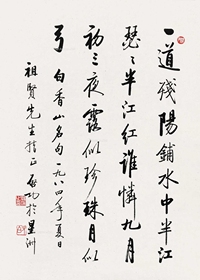 一道殘陽鋪水中半江
瑟々半江紅誰憐九月
初三夜露似珍珠月似
弓 白香山名句一九八四年夏日
祖賢先生指正 啟功於星洲